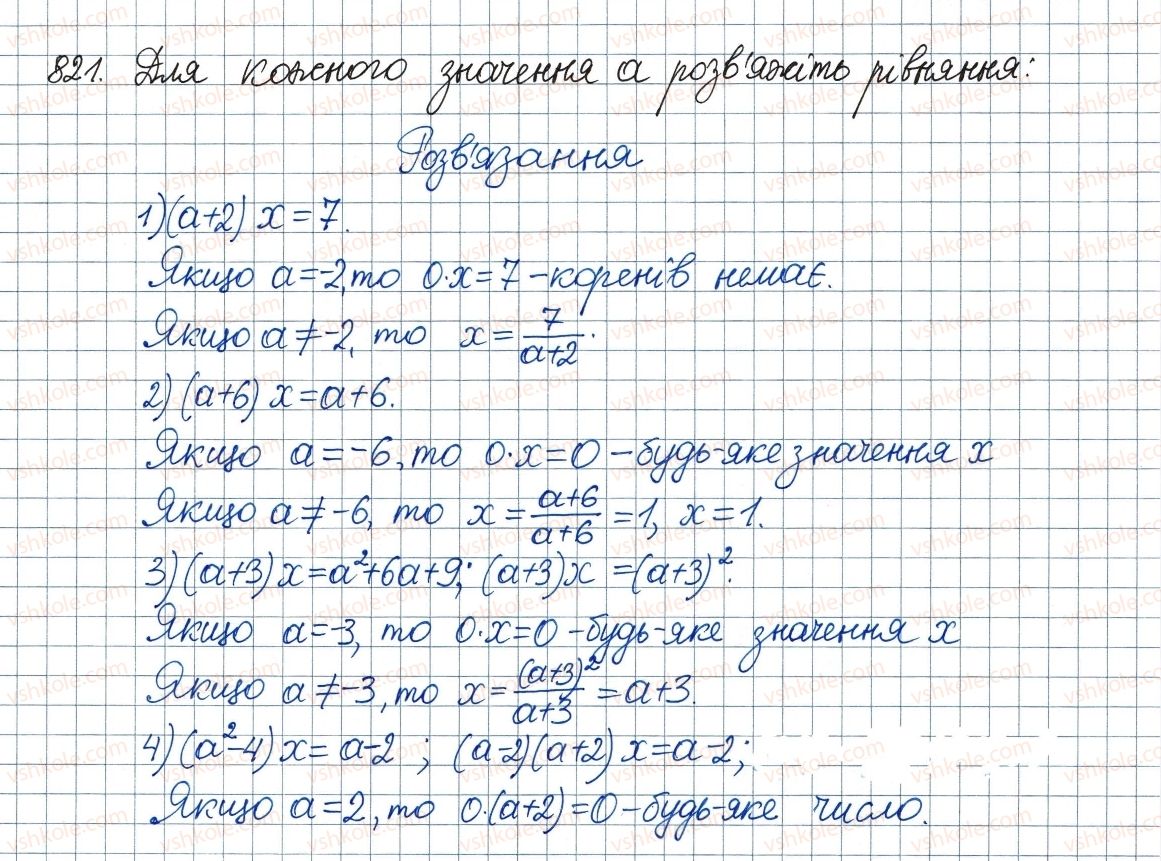 821. Для кожного значення a розв'яжіть рівняння:
Розв'язання
1) (a+2) x = 7.
Якщо a = -2, то 0·x = 7 – коренів немає.
Якщо a ≠ -2, то x = 7/(a+2).
2) (a+6) x = a+6.
Якщо a = -6, то 0·x = 0 – будь-яке значення x
Якщо a ≠ -6, то x = (a+6)/(a+6) = 1, x = 1.
3) (a+3) x = a²+6a+9; (a+3)x = (a+3)².
Якщо a = -3, то 0·x = 0 – будь-яке значення x
Якщо a ≠ -3, то x = (a+3)²/(a+3) = a+3.
4) (a²-4) x = a-2 ; (a-2)(a+2) x = a-2;
Якщо a = 2, то 0·(a+2) = 0 – будь-яке число.